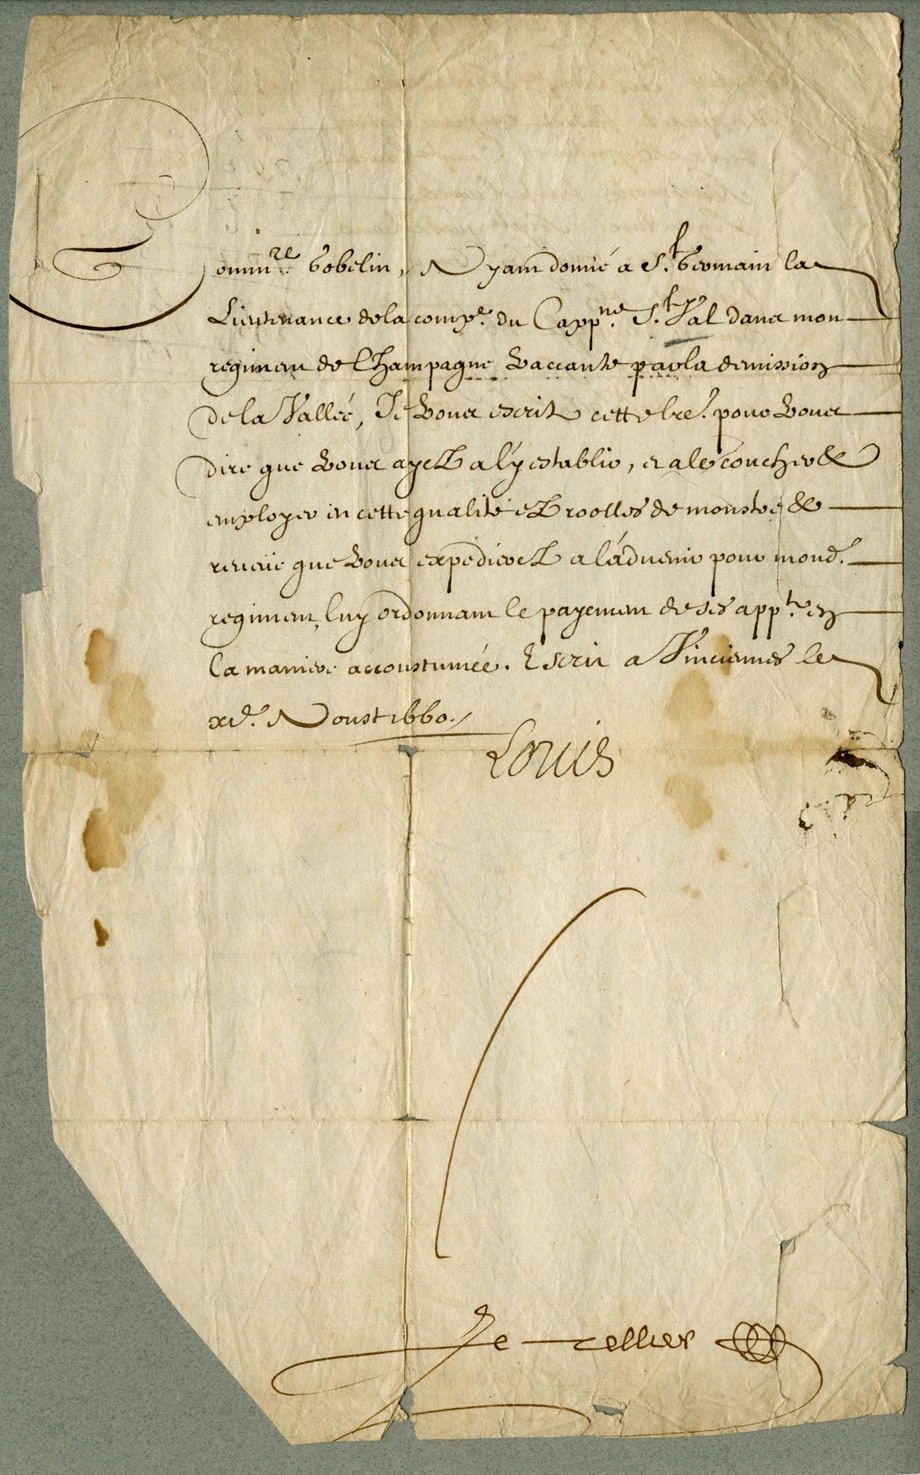 Comm.re Gobelin, Ayant donné a S.t Germain la
Lieutenance de la comp.e du Capp.ne S.t Val dans mon
regiment de Champagne vaccante par la demission
de la Vallée, Je vous escrit cette lre. pour vous
dire que vous ayez a l'y establir, et a le coucher &
employer en cette qualité ez roolles de monstre &
reveüe que vous expedierez a l'advenir pour mond.
regiment, luy ordonnant le payement de ses app.ts en
la maniere accoustumée. Escrit a Vincennes le
Aoust 1660.
Louis
Le Tellier